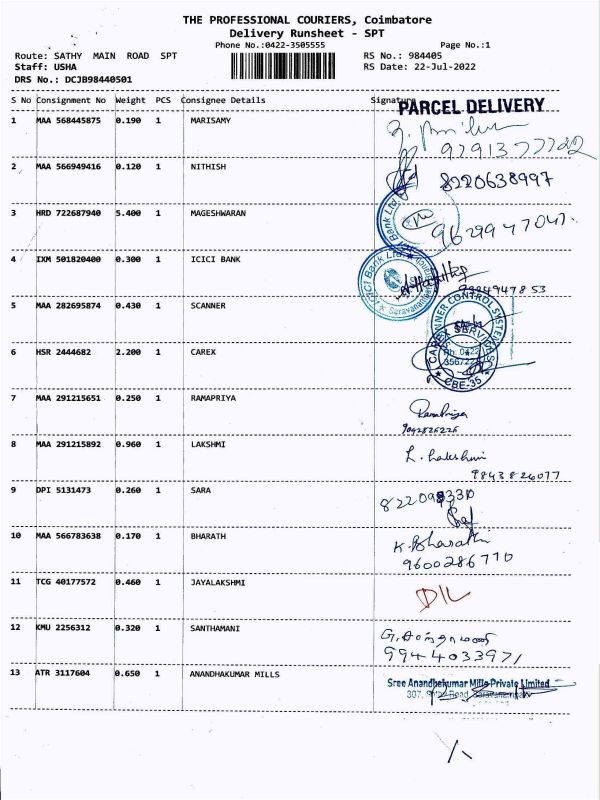 THE PROFESSIONAL COURIERS, Coimbatore
Delivery Runsheet - SPT
Phone No.:0422-3505555 Page No.:1
Route: SATHY MAIN ROAD SPT RS No.: 984405
Staff: USHA RS Date: 22-Jul-2022
DRS No.: DCJB98440501
S No Consignment No Weight PCS Consignee Details Signature
PARCEL DELIVERY
1 MAA 568445875 0.190 1 MARISAMY
2 MAA 566949416 0.120 1 NITHISH 8220638997
3 HRD 722687940 5.400 1 MAGESHWARAN
4 IXM 501820400 0.300 1 ICICI BANK
ICICI Bank Ltd.
5 MAA 282695874 0.430 1 SCANNER
6 HSR 2444682 2.200 1 CAREX
CBE-35
7 MAA 291215651 0.250 1 RAMAPRIYA Ramapriya
8 MAA 291215892 0.960 1 LAKSHMI L. Lakshmi
9843826077
9 DPI 5131473 0.260 1 SARA
10 MAA 566783638 0.170 1 BHARATH K. Bharath
9600286770
11 TCG 40177572 0.460 1 JAYALAKSHMI D/L
12 KMU 2256312 0.320 1 SANTHAMANI
9944033971
13 ATR 3117604 0.650 1 ANANDHAKUMAR MILLS Sree Anandhakumar Mills Private Limited